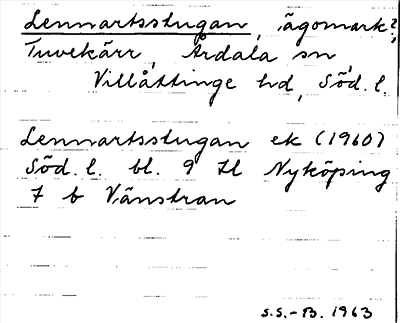 Lennartsstugan, ägomark?,
Tuvekärr, Årdala sn,
Villåttinge hd, Söd. l.
Lennartsstugan ek (1960)
Söd. l. bl. 9 H Nyköping
7 b Vänstran
S.S.-B. 1963